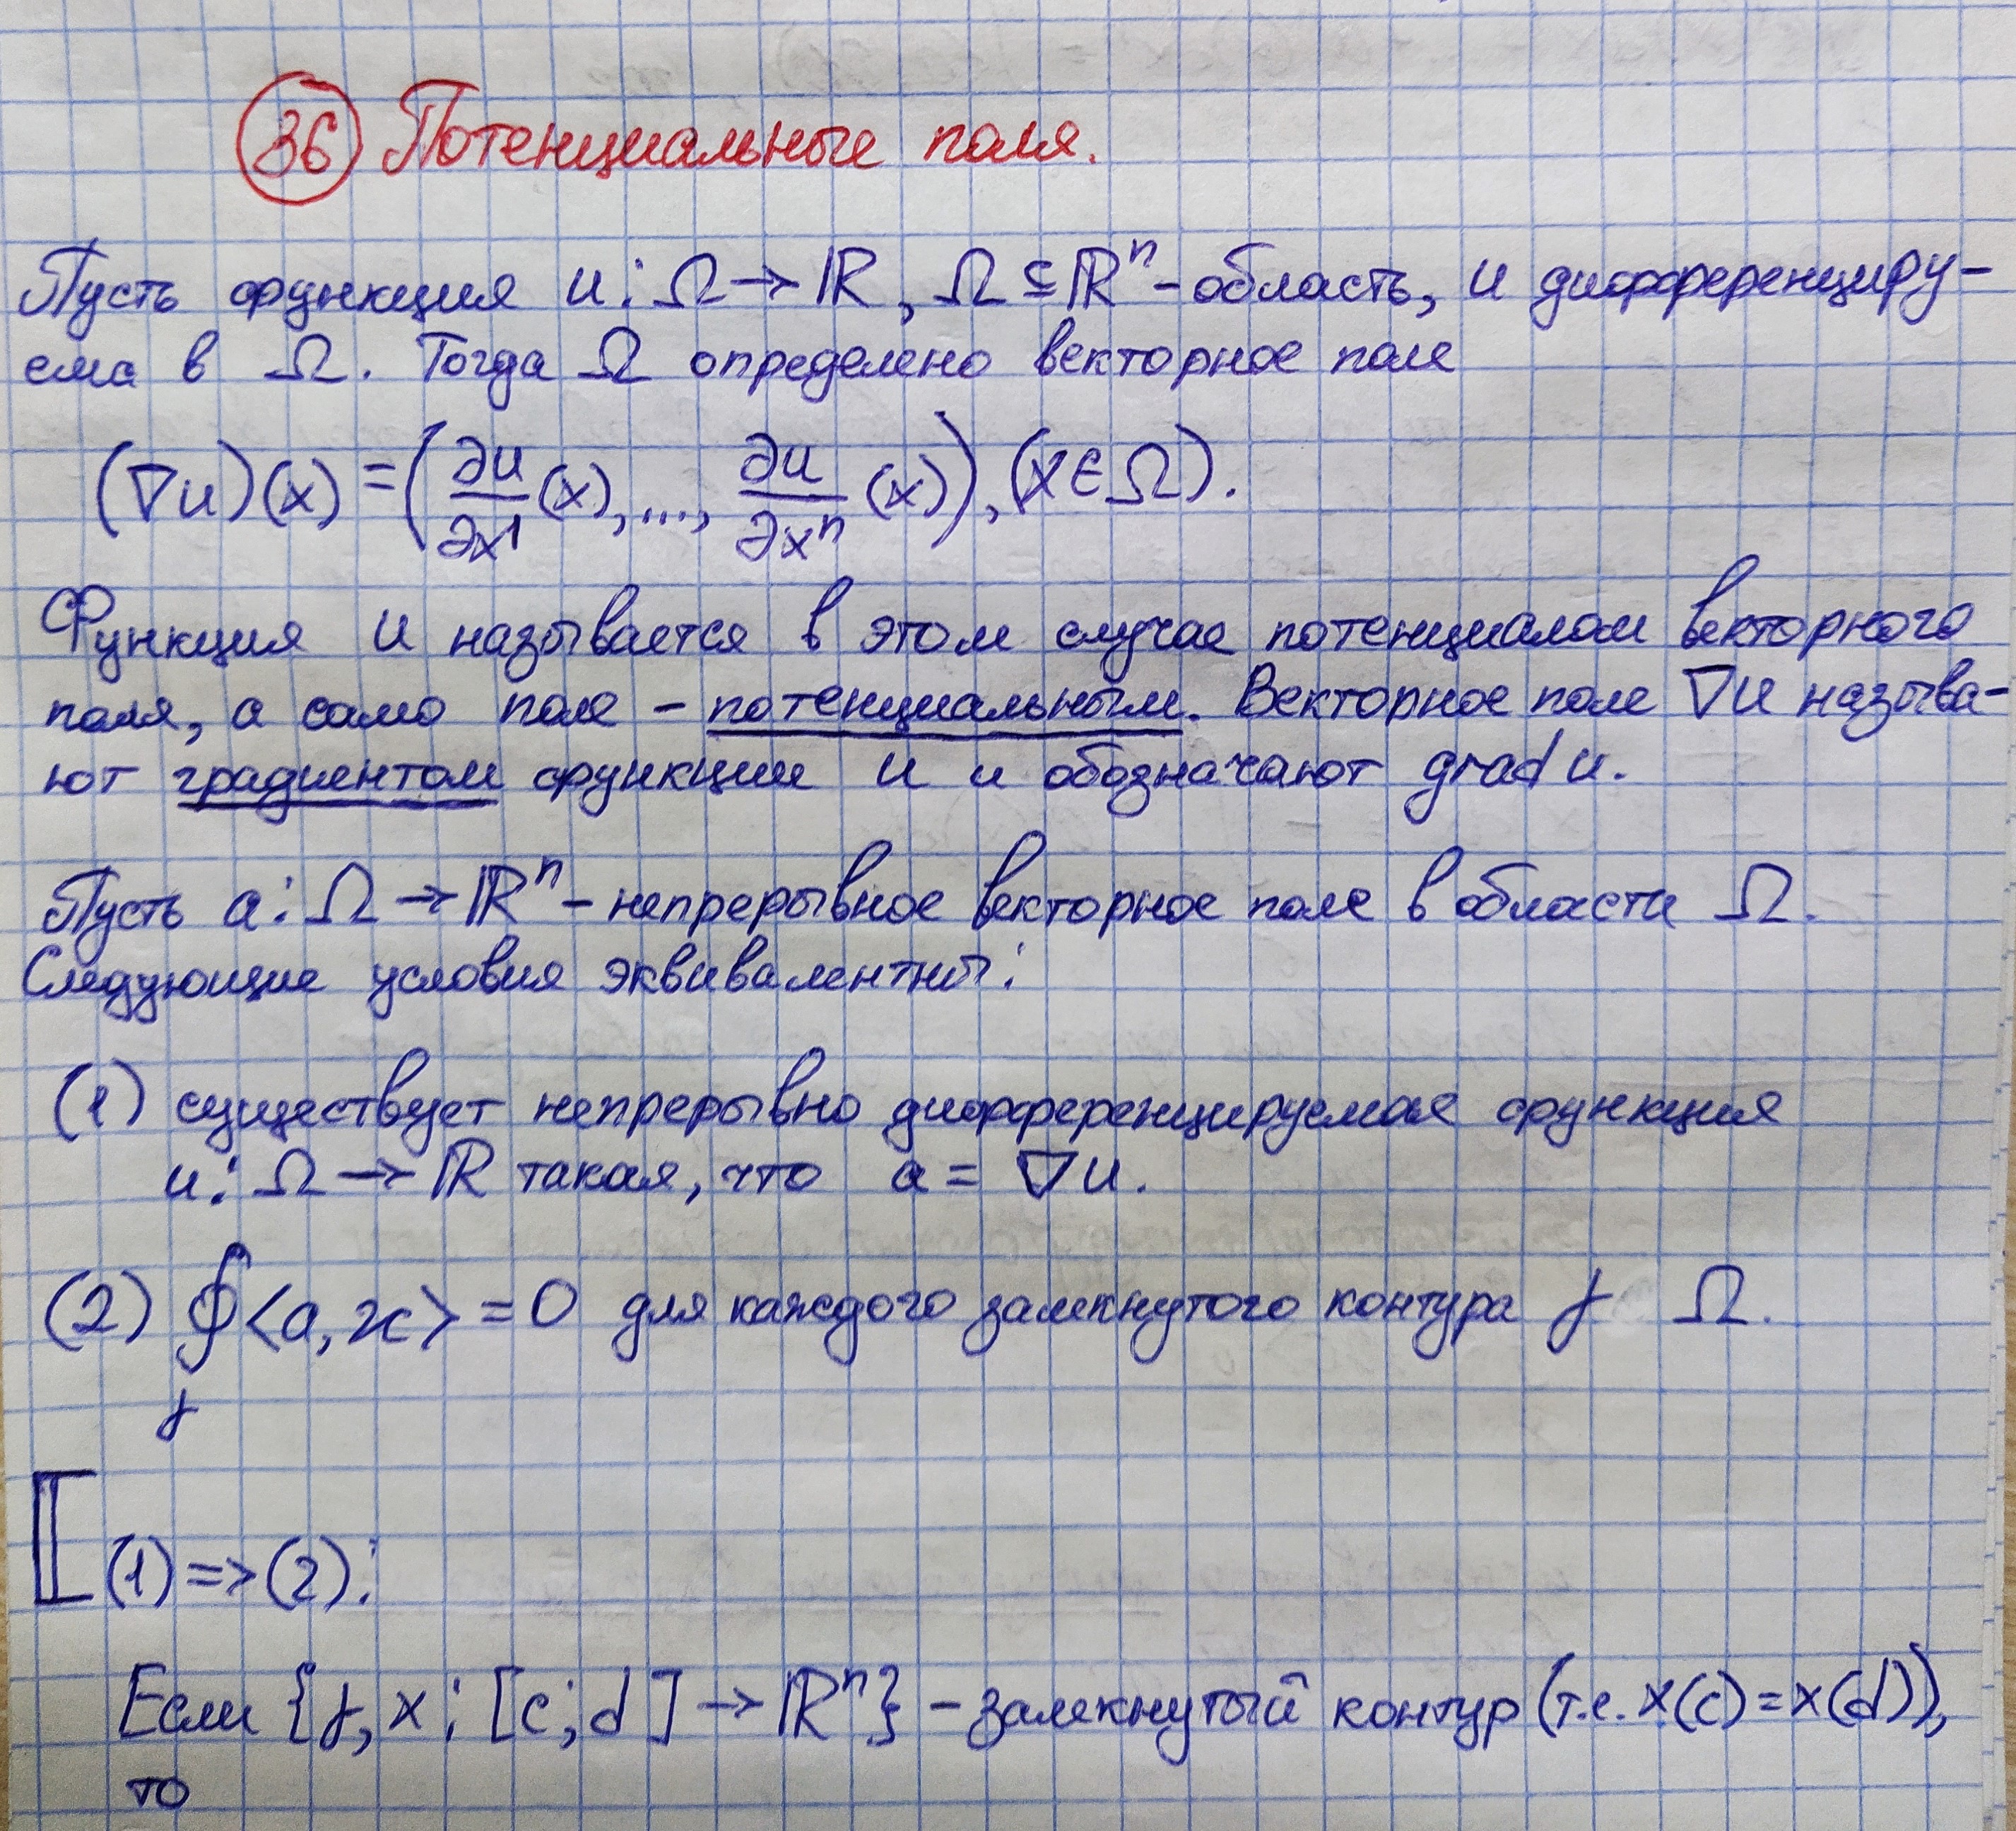 36 Потенциальные поля.
Пусть функция u: Ω → ℝ, Ω ⊆ ℝⁿ - область, u дифференциру-
ема в Ω. Тогда Ω определено векторное поле
(∇u)(x) = (∂u/∂x¹ (x), ..., ∂u/∂xⁿ (x)), (x ∈ Ω).
Функция u называется в этом случае потенциалом векторного
поля, а само поле - потенциальным. Векторное поле ∇u называ-
ют градиентом функции u и обозначают grad u.
Пусть a: Ω → ℝⁿ - непрерывное векторное поле в области Ω.
Следующие условия эквивалентны:
(1) существует непрерывно дифференцируемая функция
u: Ω → ℝ такая, что a = ∇u.
(2) ∮<a, ϰ> = 0 для каждого замкнутого контура γ Ω.
γ
⟦ (1) => (2):
Если {γ, x: [c; d] → ℝⁿ} - замкнутый контур (т.е. x(c) = x(d)),
то